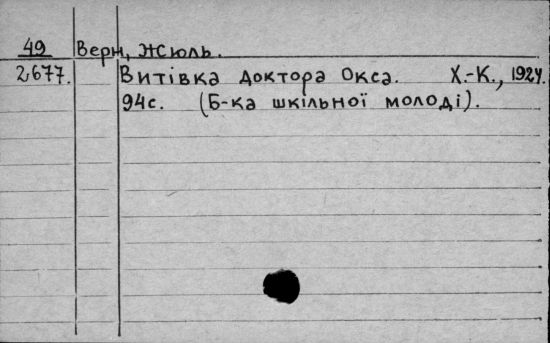 49 Верн, Жюль.
2677. Витівка доктора Окса. Х.-К., 1927.
94с. (Б-ка шкільної молоді).